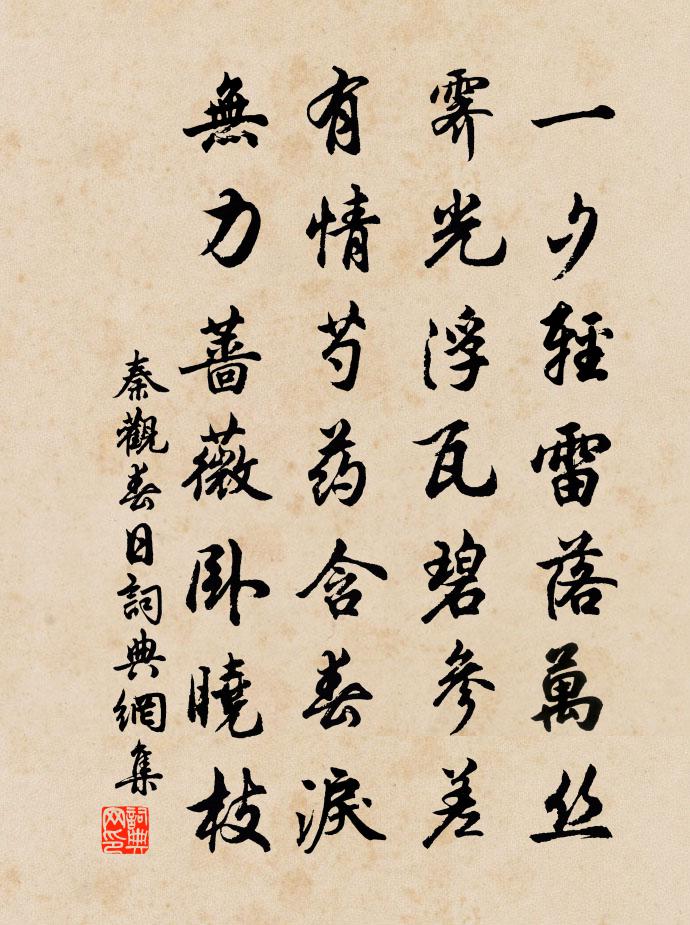 一夕輕雷落萬丝
霽光浮瓦碧參差
有情芍药含春淚
無力薔薇卧曉枝
秦觀春日詞典網集
詞典网印